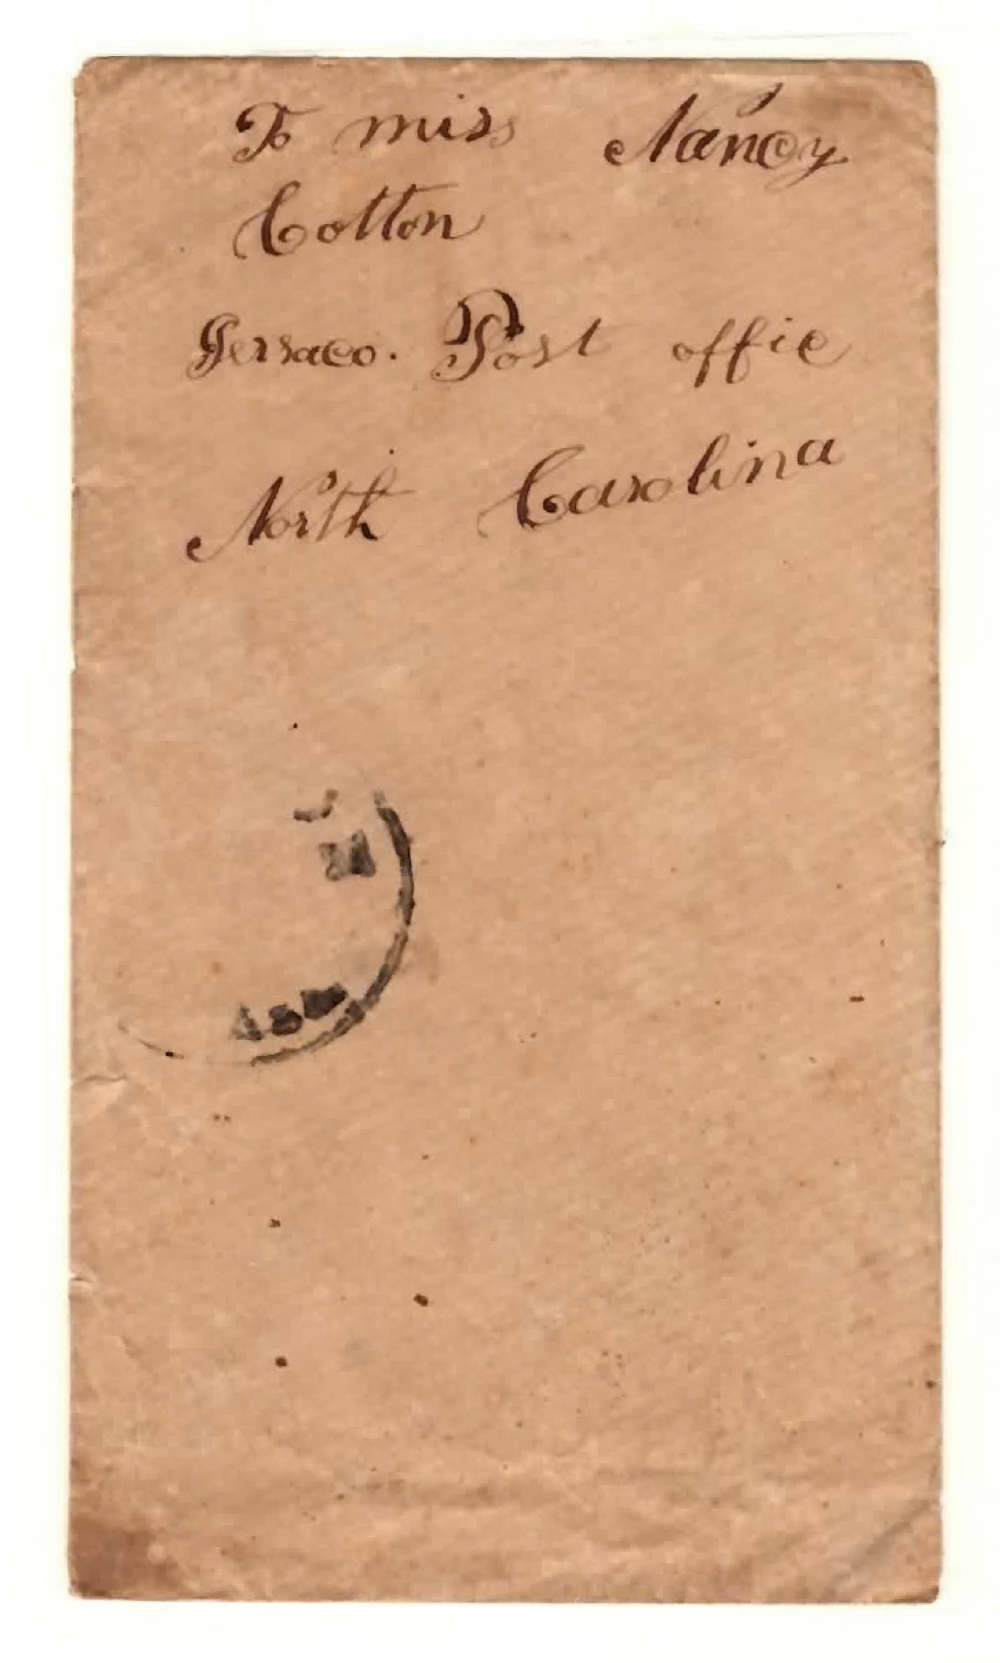 To miss Nancy
Cotton
Post offie
North Carolina